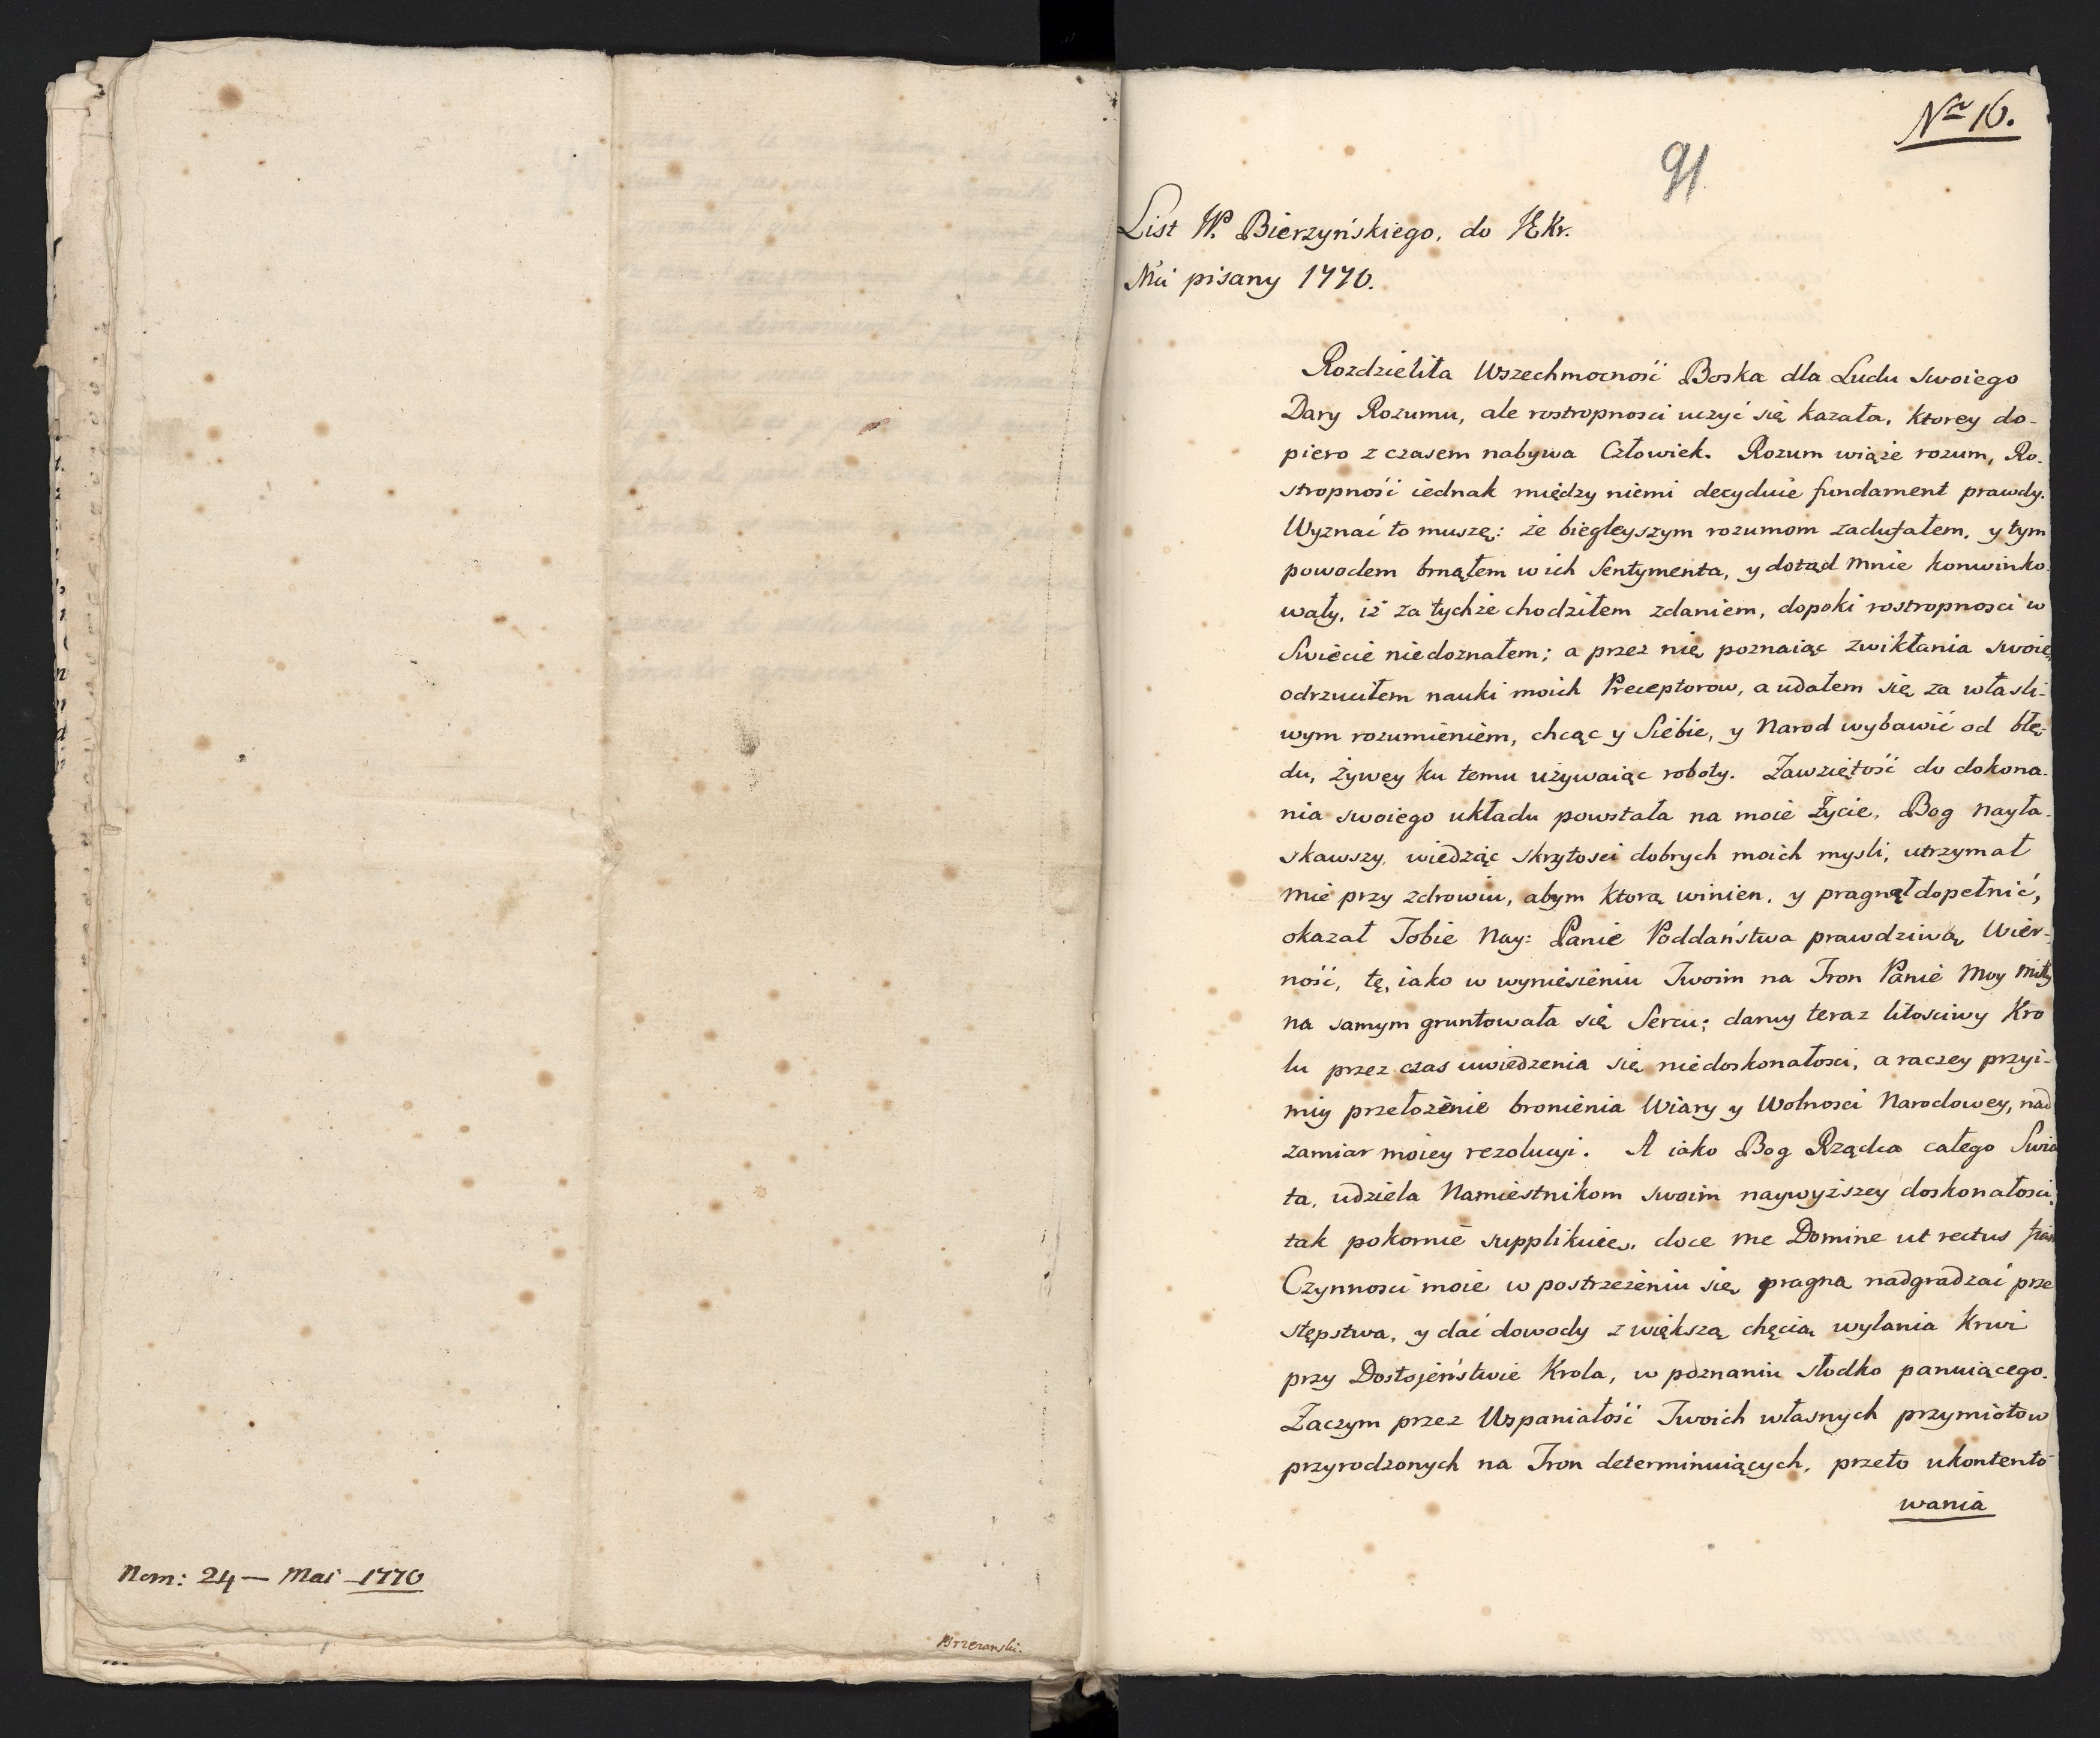 Nom: 24 — Mai 1770
Nro 16.
91
List W. Bierzyńskiego, do JEKr.
Mci pisany 1770.
Rozdzieliła Wszechmocność Boska dla Ludu swoiego
Dary Rozumu, ale rostropnosci uczyć się kazała, ktorey do-
piero z czasem nabywa Człowiek. Rozum wiąże rozum, Ro-
stropność iednak między niemi decyduie fundament prawdy.
Wyznać to muszę: że biegleyszym rozumom zadufałem, y tym
powodem brnąłem w ich Sentymenta, y dotąd mnie konwinko
wały, iż za tychże chodziłem zdaniem, dopoki rostropnosci w
Swiecie niedoznałem; a przez nię poznaiąc zwikłania swoie,
odrzuciłem nauki moich Preceptorow, a udałem się za własli-
wym rozumieniem, chcąc y Siebie, y Narod wybawić od błę-
du, żywey ku temu używaiąc roboty. Zawziętość do dokona-
nia swoiego układu powstała na moie Życie, Bog Nayła-
skawszy, wiedząc skrytosci dobrych moich mysli, utrzymał
mie przy zdrowiu, abym ktorą winien, y pragnął dopełnić,
okazał Tobie Nay: Panie Poddaństwa prawdziwą Wier-
ność, tę, iako w wyniesieniu Twoim na Tron Panie Moy Miły
na samym gruntowała się Sercu; daruy teraz litosciwy Kro
lu przez czas uwiedzenia się niedoskonałosci, a raczey przyi-
miy przełożenie bronienia Wiary y Wolnosci Narodowey, nad
zamiar moiey rezolucyi. A iako Bog Rządca całego Swia
ta, udziela Namiestnikom swoim naywyższey doskonałosci;
tak pokornie supplikuię, doce me Domine ut rectus fiam
Czynnosci moie w postrzeżeniu się pragną nadgradzać prze
stępstwa, y dać dowody z większą chęcią wylania Krwi
przy Dostojeństwie Krola, w poznaniu słodko panuiącego.
Zaczym przez Wspaniałość Twoich własnych przymiotow
przyrodzonych na Tron determinuiących, przeto ukontento
wania